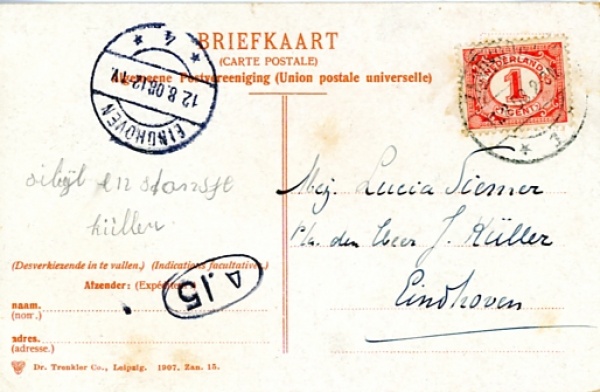 BRIEFKAART
(CARTE POSTALE)
Algemeene Postvereeniging (Union postale universelle)
EINDHOVEN
12.8.08.12-1V.
4
NEDERLAND
1
CENT
en stansje
Küller.
Mej. Lucia Siemer
den Heer J. Küller
Eindhoven
(Desverkiezende in te vullen.) (Indications facultatives.)
Afzender: (Expéditeur)
A.15
naam.
(nom.)
adres.
(adresse.)
Dr. Trenkler Co., Leipzig. 1907. Zan. 15.